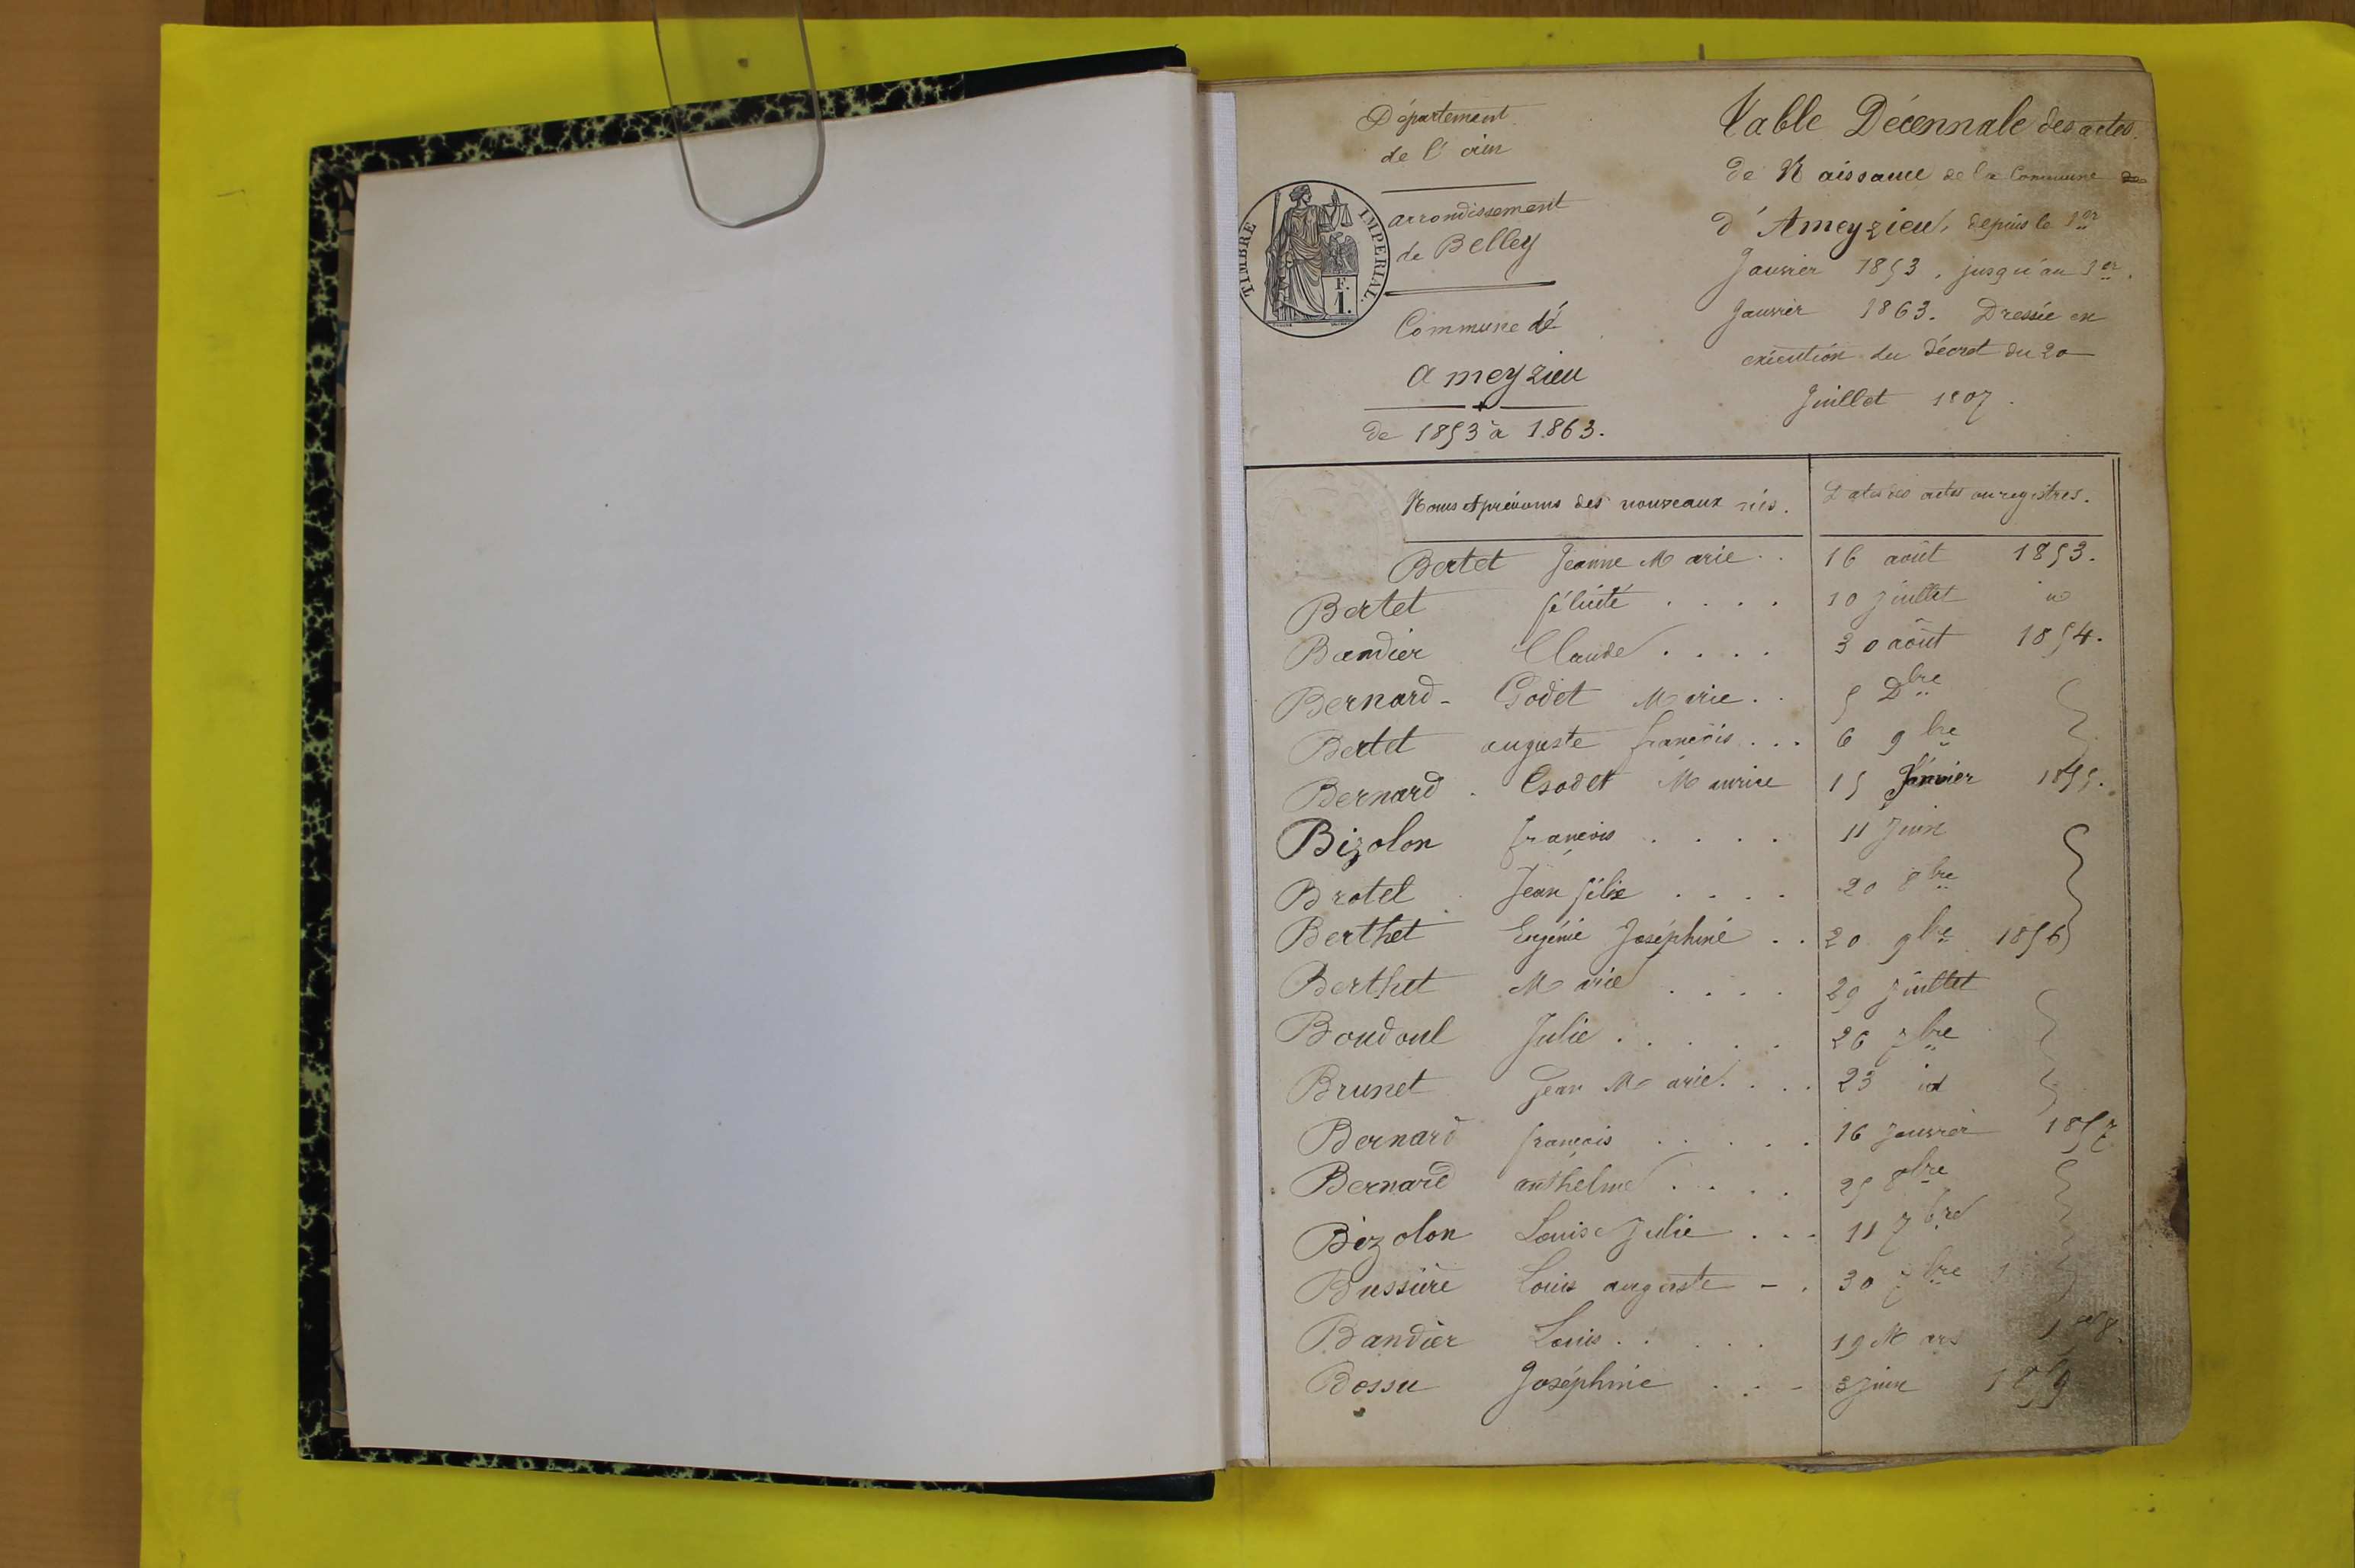 Département
de l'ain
TIMBRE IMPERIAL.
F.
1.
arrondissement
de Belley
Commune dé
ameyzieu
de 1853 à 1863.
Table Décennale des actes
de Naissance de la Commune de
d'Ameyzieu, depuis le 1er
Janvier 1853, jusqu'au 1er
Janvier 1863. Dressée en
exécution du décret du 20
Juillet 1807.
Noms et prénoms des nouveaux nés. Dates des actes ou registres.
Bertet Jeanne Marie . . 16 août 1853.
Bertet félicité . . . . 10 juillet id
Bandier Claude . . . . 30 août 1854.
Bernard - Godet Marie . . 5 Dbre
Bertet auguste francois . . . 6 9bre
Bernard - Godet Maurice 15 Janvier 1855.
Bizolon françois . . . . 11 Juin
Brotel Jean félix . . . . 20 8bre
Berthet Eugénie Joséphine . . 20 9bre 1856
Berthet Marie . . . . 29 Juillet
Boudoul Julie . . . . . 26 7bre
Brunet Jean Marie . . . 23 id
Bernard francois . . . . . 16 Janvier 1857
Bernard anthelme . . . . 25 8bre
Bizolon Louise Julie . . . 11 7bre
Bussière Louis auguste - . 30 7bre
Bandier Louis . . . . . 19 Mars 1858.
Bossu Joséphine . . - 3 Juin 1859